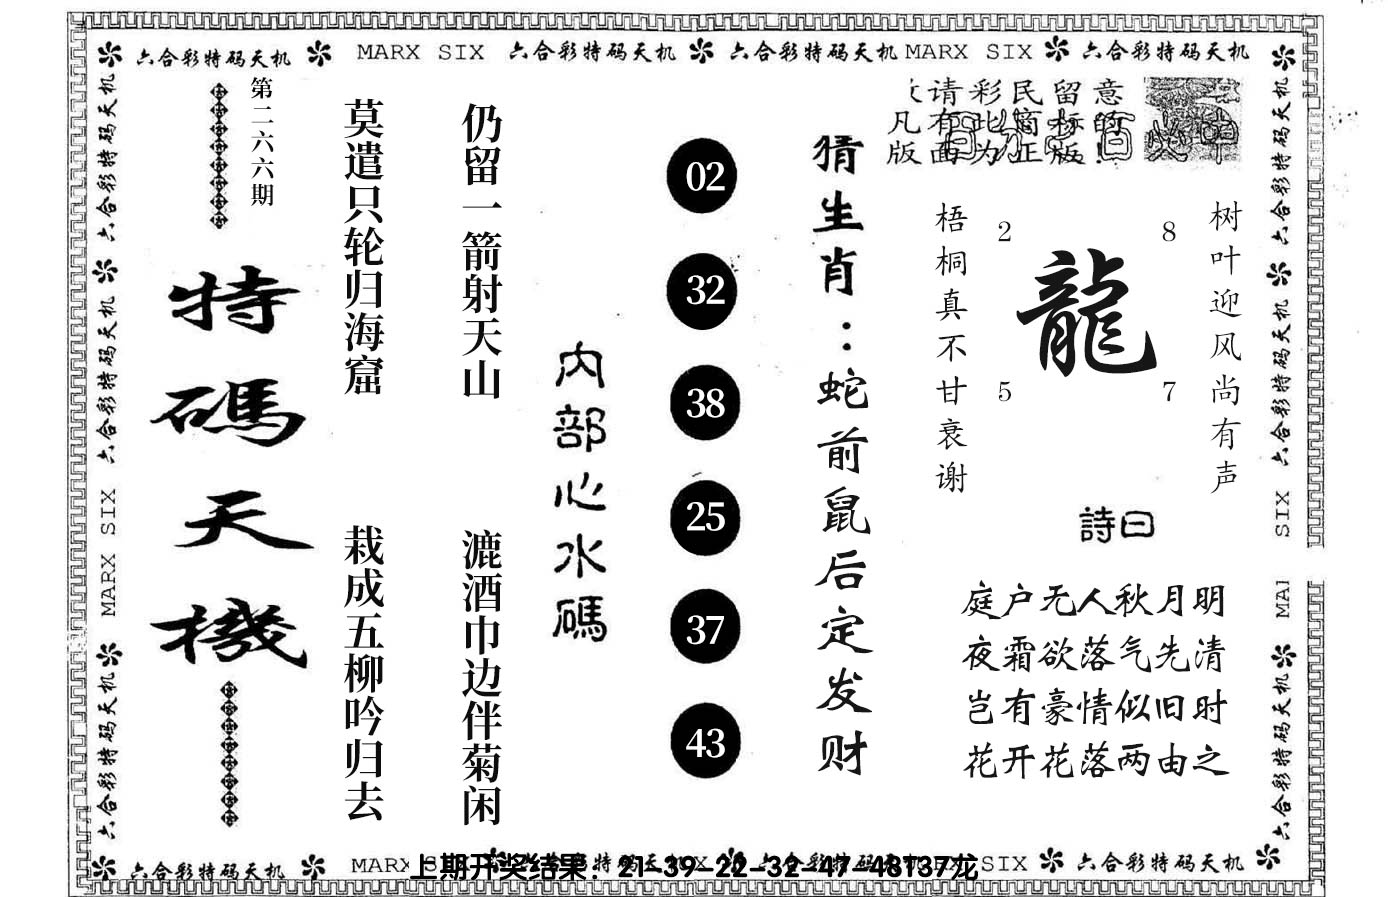 六合彩特码天机 MARX SIX 六合彩特码天机 六合彩特码天机 MARX SIX 六合彩特码天机
六合彩特码天机
六合彩特码天机
MARX SIX
六合彩特码天机
第二六六期
特碼天機
莫遣只轮归海窟
仍留一箭射天山
栽成五柳吟归去
漉酒巾边伴菊闲
内部心水碼
02
32
38
25
37
43
猜生肖：蛇前鼠后定发财
请彩民留意
凡有此商标的
版面为正版！
梧桐真不甘衰谢
2
8
龍
5
7
树叶迎风尚有声
詩曰
庭户无人秋月明
夜霜欲落气先清
岂有豪情似旧时
花开花落两由之
六合彩特码天机
六合彩特码天机
SIX
MAI
六合彩特码天机
六合彩特码天机 MARX
上期开奖结果：21-39-22-32-47-48T37龙
SIX 六合彩特码天机